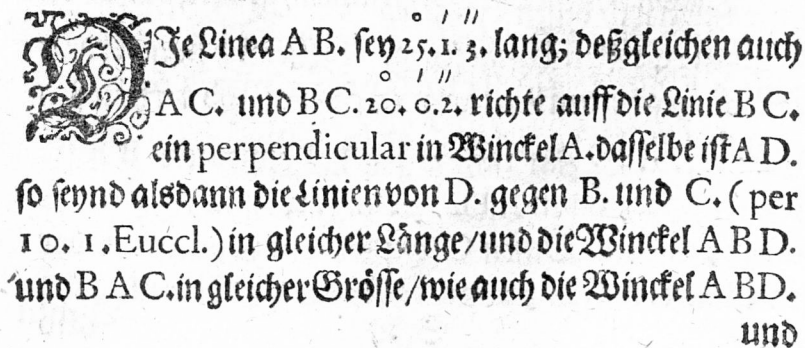 ° ′ ″
DJe Linea A B. sey 25. 1. 3. lang; deßgleichen auch
° ′ ″
A C. und B C. 20. 0. 2. richte auff die Linie B C.
ein perpendicular in Winckel A. dasselbe ist A D.
so seynd alsdann die Linien von D. gegen B. und C. (per
10. 1. Euccl.) in gleicher Länge/und die Winckel A B D.
und B A C. in gleicher Grösse/wie auch die Winckel A BD.
und